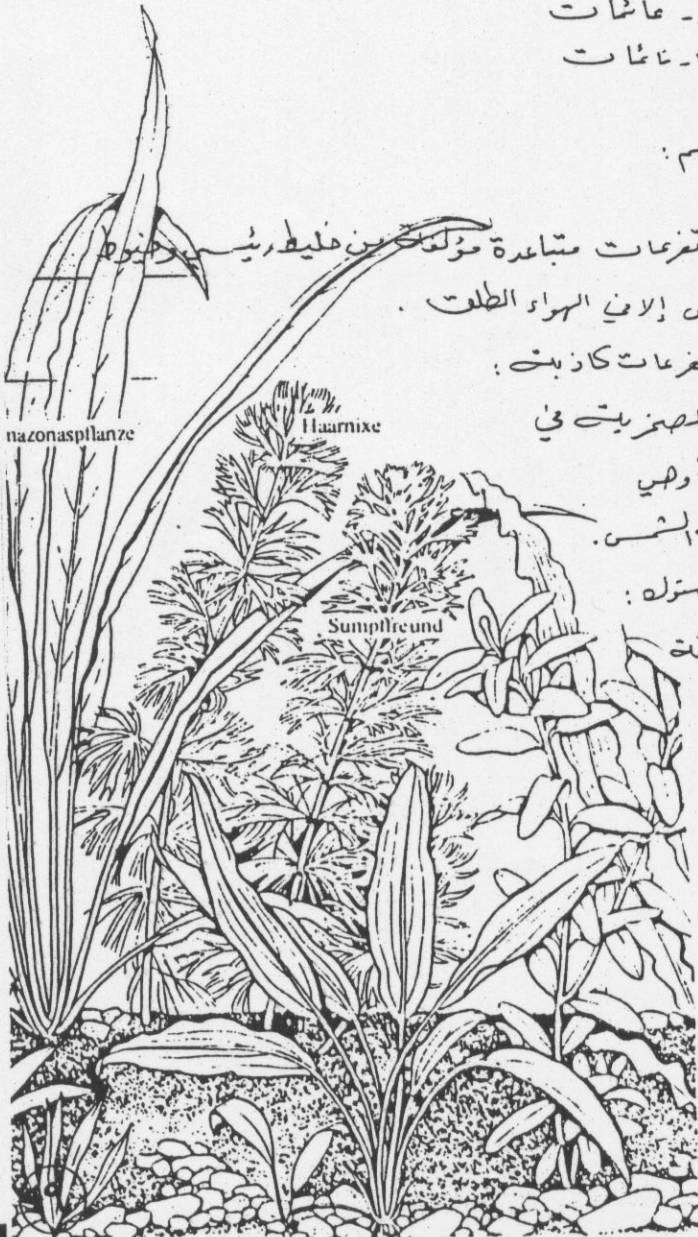 ـ عائمات
ـ نائمات
تفرعات متباعدة مؤلفة من خليط رئيسي وخيوط
إلا في الهواء الطلق .
تفرعات كاذبة :
الصخرية في
وهي
الشمس .
nazonaspflanze
Haarnixe
Sumpffreund